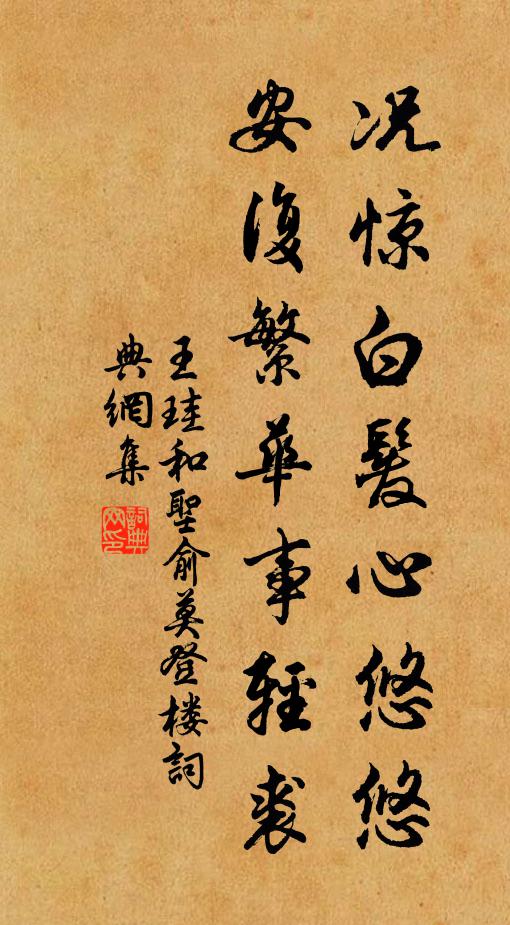 况惊白髮心悠悠
安復繁華事輕裘
王珪和聖俞莫登楼詞
典網集
詞典網印